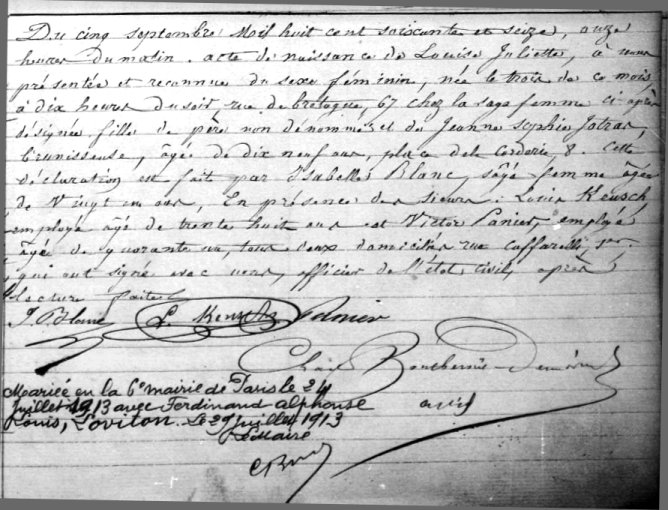 Du cinq septembre Mil huit cent soixante et seize, onze
heures du matin. acte de naissance de Louise Juliette, à nous
présentée et reconnue du sexe féminin, née le trois de ce mois
à dix heures du soir, rue de bretagne, 67 chez la sage femme ci après
désignée fille de père non dénommé et de Jeanne Sophie
brunisseuse, âgée de dix neuf ans, place de la Corderie, 8. Cette
déclaration est fait par Isabelle Blanc, sage femme âgée
de Vingt un ans, En présence des sieurs: Louis Keusch,
employé âgé de trente huit ans et Victor Panier, employé
âgé de quarante un, tous deux domiciliés rue Caffarelli
qui ont signé avec nous, officier de l'état civil, après
lecture faite
I. Blanc L. Keusch Panier
Mariée en la 6e mairie de Paris le 24
juillet 1913 avec Ferdinand alphonse
Louis, Loviton. Le 29 Juillet 1913
Le Maire